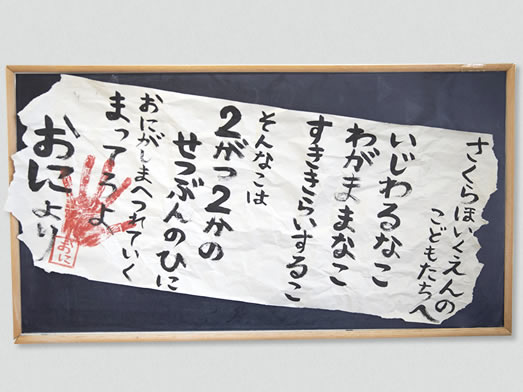 さくらほいくえんの
こどもたちへ
いじわるなこ
わがままなこ
すききらいするこ
そんなこは
2がつ2かの
せつぶんのひに
おにがしまへつれていく
まってろよ
おにより
おに